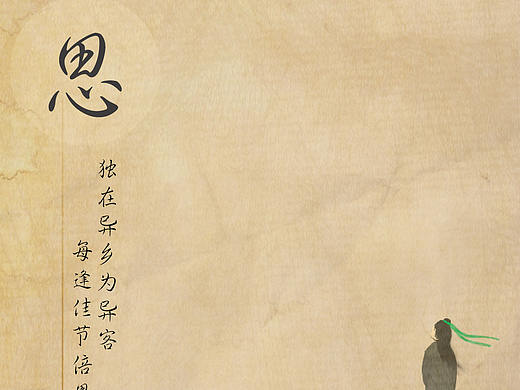 思
独在异乡为异客
每逢佳节倍思